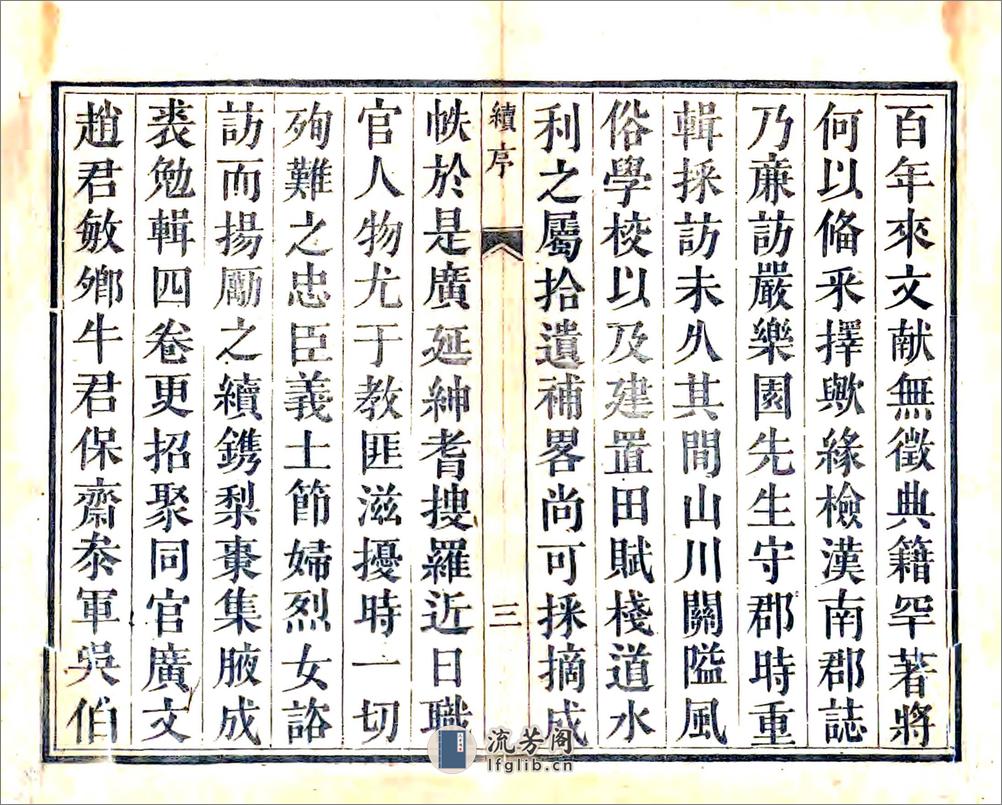 百年來文献無徵典籍罕著將
何以俻釆擇歟緣檢漢南郡誌
乃廉訪嚴樂園先生守郡時重
輯採訪未久其間山川關隘風
俗學校以及建置田賦棧道水
利之屬拾遺補畧尚可採摘成
續序
三
帙於是廣延紳耆搜羅近日職
官人物尤于教匪滋擾時一切
殉難之忠臣義士節婦烈女諮
訪而揚勵之續鐫梨棗集腋成
裘勉輯四卷更招聚同官廣文
趙君敏鄉牛君保齋叅軍吳伯
流芳阁
lfglib.cn